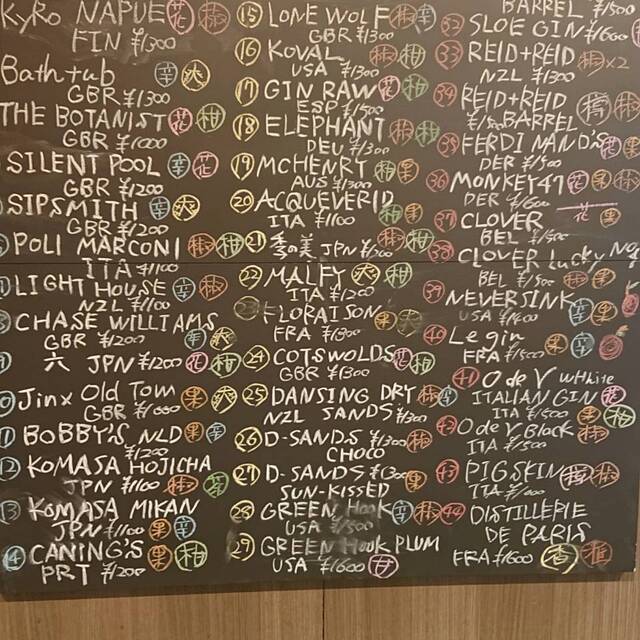 KYRO NAPUE 花
FIN ¥1300
Bathtub 辛
GBR ¥1300
THE BOTANIST 花 柑
GBR ¥1000
SILENT POOL 辛 花
GBR ¥1200
SIPSMITH 辛
GBR ¥1200
POLI MARCONI 柑
ITA ¥1100
LIGHT HOUSE 辛
NZL ¥1100
CHASE WILLIAMS
GBR ¥1200 辛
六 JPN ¥1200 花 柑
Jinx Old Tom 果
GBR ¥1000
BOBBY'S NLD 果 辛
¥1200
12 KOMASA HOJICHA
JPN ¥1100
13 KOMASA MIKAN
JPN ¥1100 果 辛
14 CANING'S 果 柑
PRT ¥1200
15 LONE WOLF 辛
GBR ¥1300
16 KOVAL
USA ¥1300
17 GIN RAW 花 柑
ESP ¥1500
18 ELEPHANT
DEU ¥1300
19 MCHENRY 果
AUS ¥1300
20 ACQUEVERID
ITA ¥1100
21 季の美 JPN ¥1300
22 MALFY 柑
ITA ¥1200
23 FLORAISON 果
FRA ¥1300
24 COTSWOLDS 花 柑
GBR ¥1300
25 DANSING DRY
NZL SANDS ¥1300
26 D-SANDS ¥1300
CHOCO
27 D-SANDS ¥1300 果
SUN-KISSED
28 GREEN HOOK 辛
USA ¥1500
29 GREEN HOOK PLUM
USA ¥1600 甘
BARREL ¥1500
32 SLOE GIN ¥1600
33 REID+REID ×2
NZL ¥1300
34 REID+REID
BARREL
35 FERDINAND'S 花 果
DER ¥1500
36 MONKEY47 花 果
DER ¥1600
37 CLOVER 花 果
BEL ¥1500
38 CLOVER Lucky No4
BEL ¥1500 果
39 NEVERSINK
USA ¥1400 辛 果
40 Le gin
FRA ¥1500 果 辛
41 O de V White
ITALIAN GIN 花
ITA ¥1500 果 柑
42 O de V Black
ITA ¥1500
43 PIGSKIN
ITA
44 DISTILLERIE
DE PARIS
FRA ¥1600 香